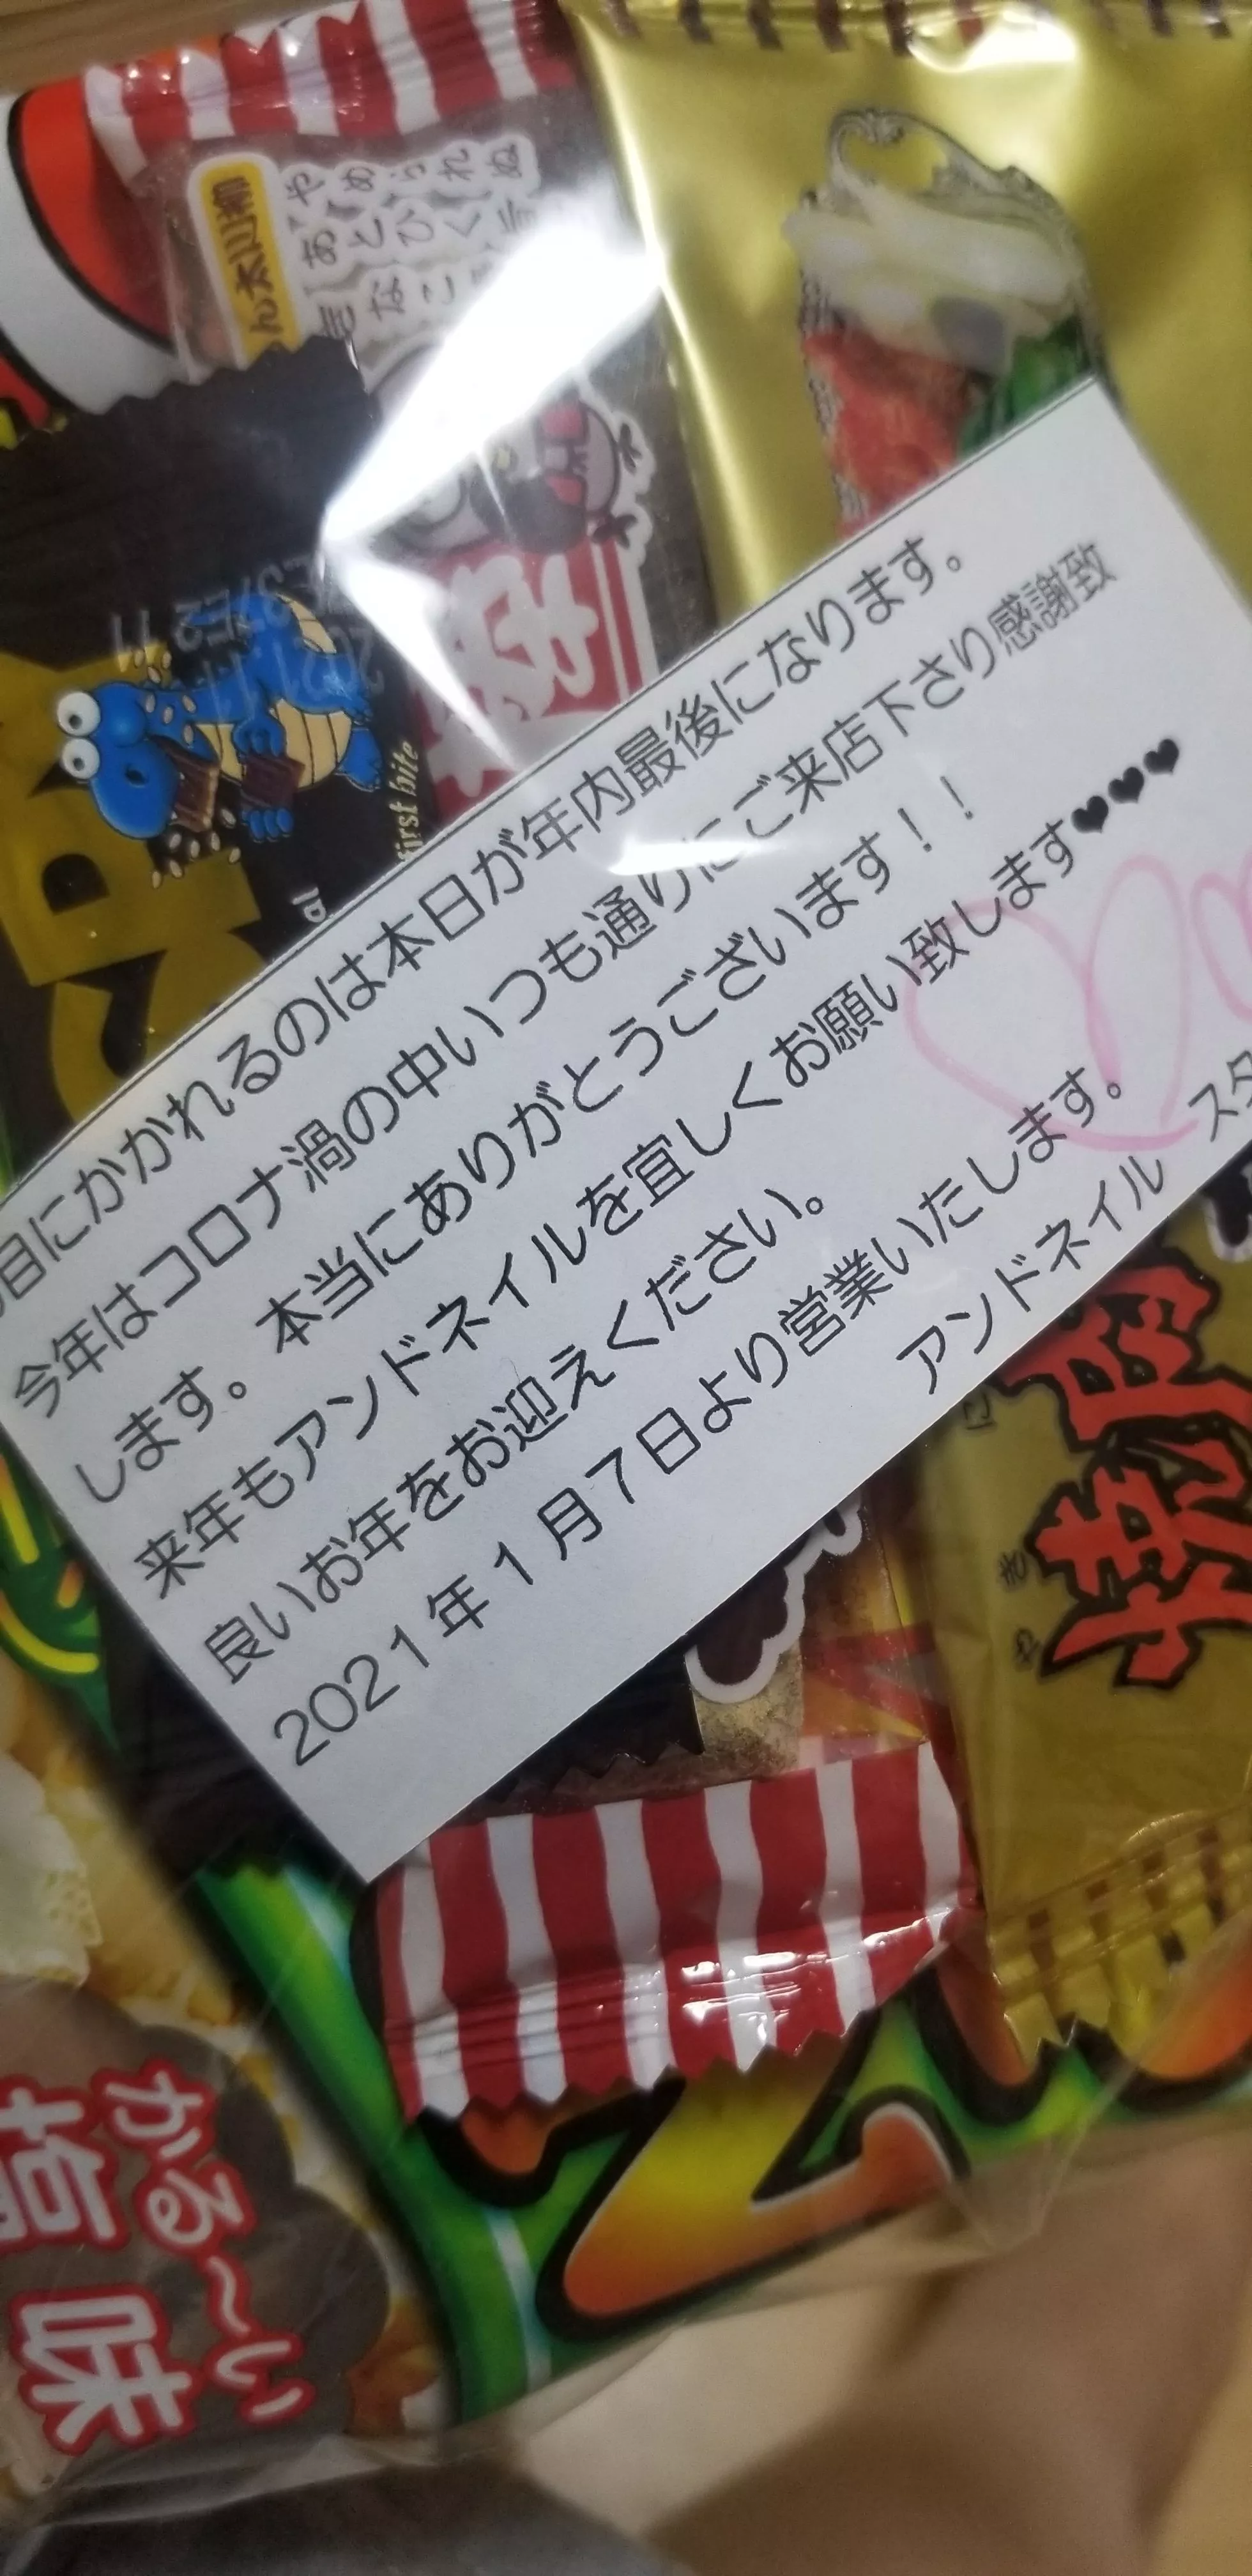 目にかかれるのは本日が年内最後になります。
今年はコロナ渦の中いつも通りにご来店下さり感謝致
します。本当にありがとうございます！！
来年もアンドネイルを宜しくお願い致します♥♥♥
良いお年をお迎えください。
2021年1月7日より営業いたします。
アンドネイル スタ
やめられぬ
あとひく
太郎
first bite
2021.11
焼肉
やき
かる～い
塩味